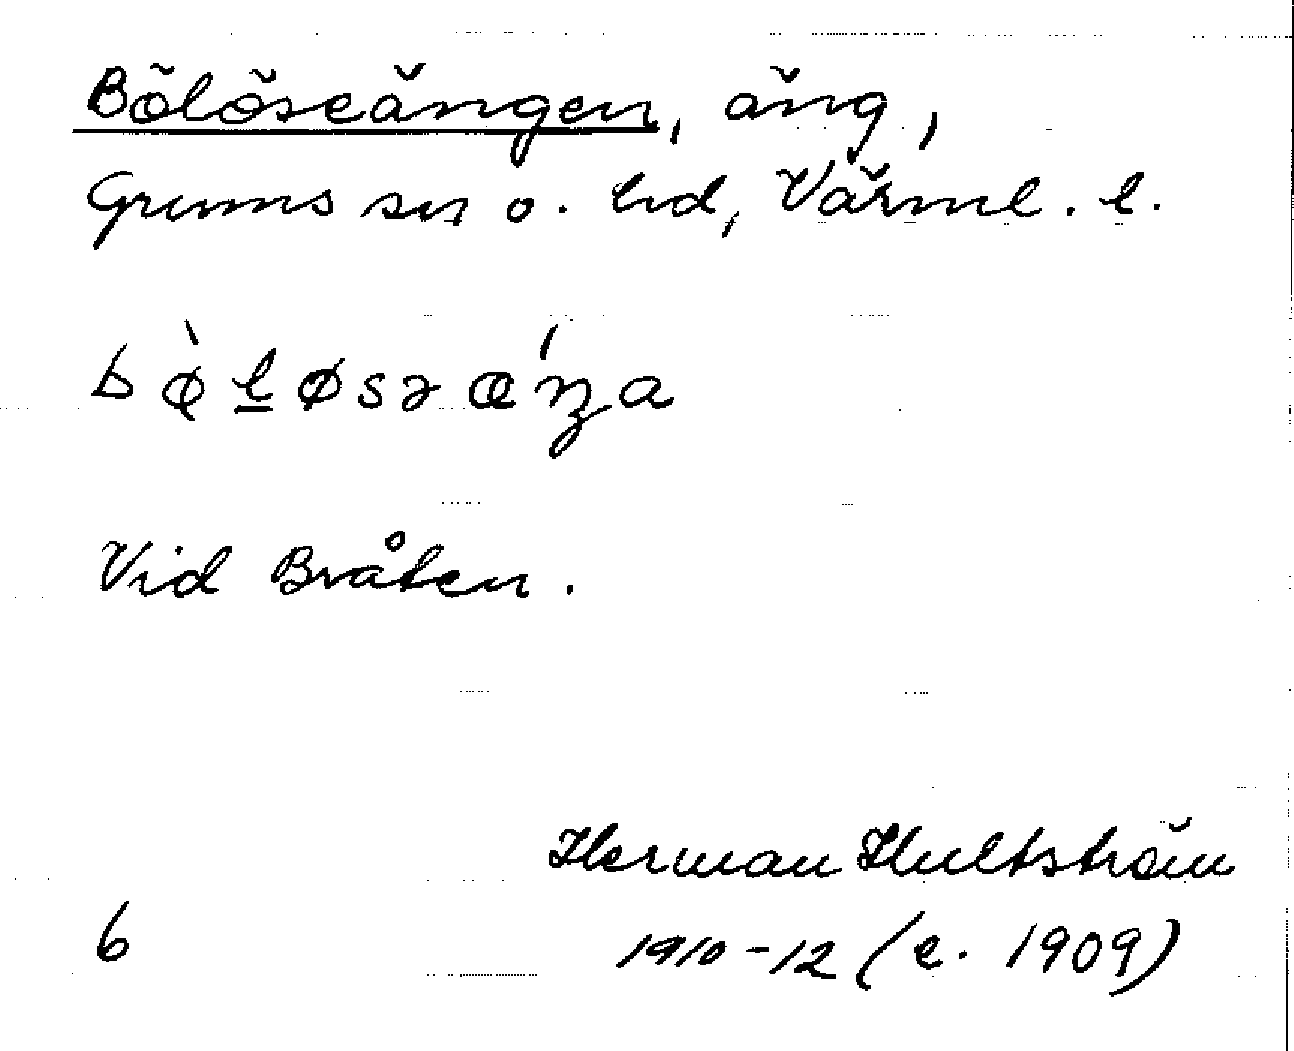 Bölöseängen, äng,
Grums sn o. hd, Värml. l.
bø̀løsəǽŋa
Vid Bråten.
Herman Hultström
6 1910-12 (e. 1909)